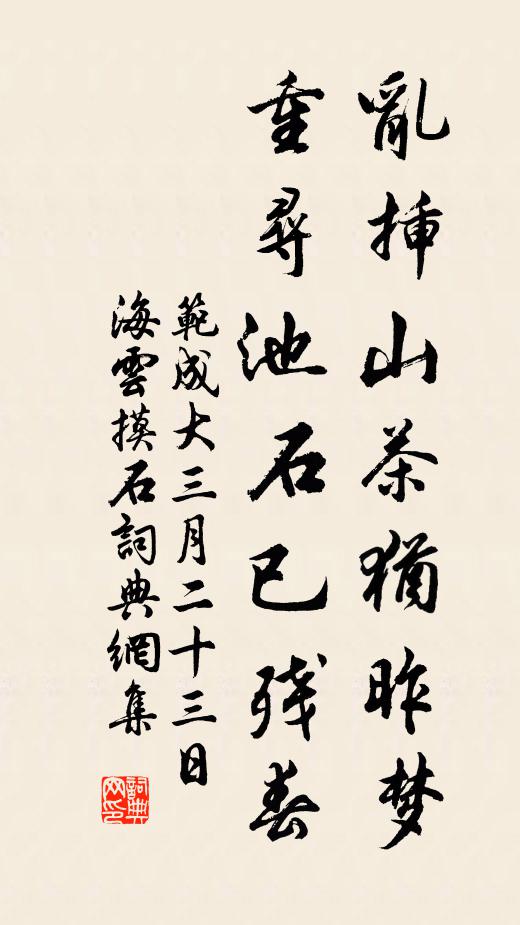 亂挿山茶猶昨梦
重尋池石已残春
範成大三月二十三日
海雲摸石詞典網集
詞典
网印